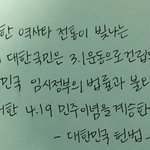 한 역사와 전통이 빛나는
대한국민은 3.1운동으로 건립
민국 임시정부의 법통과 불
거한 4.19 민주이념을 계승
- 대한민국 헌법 -